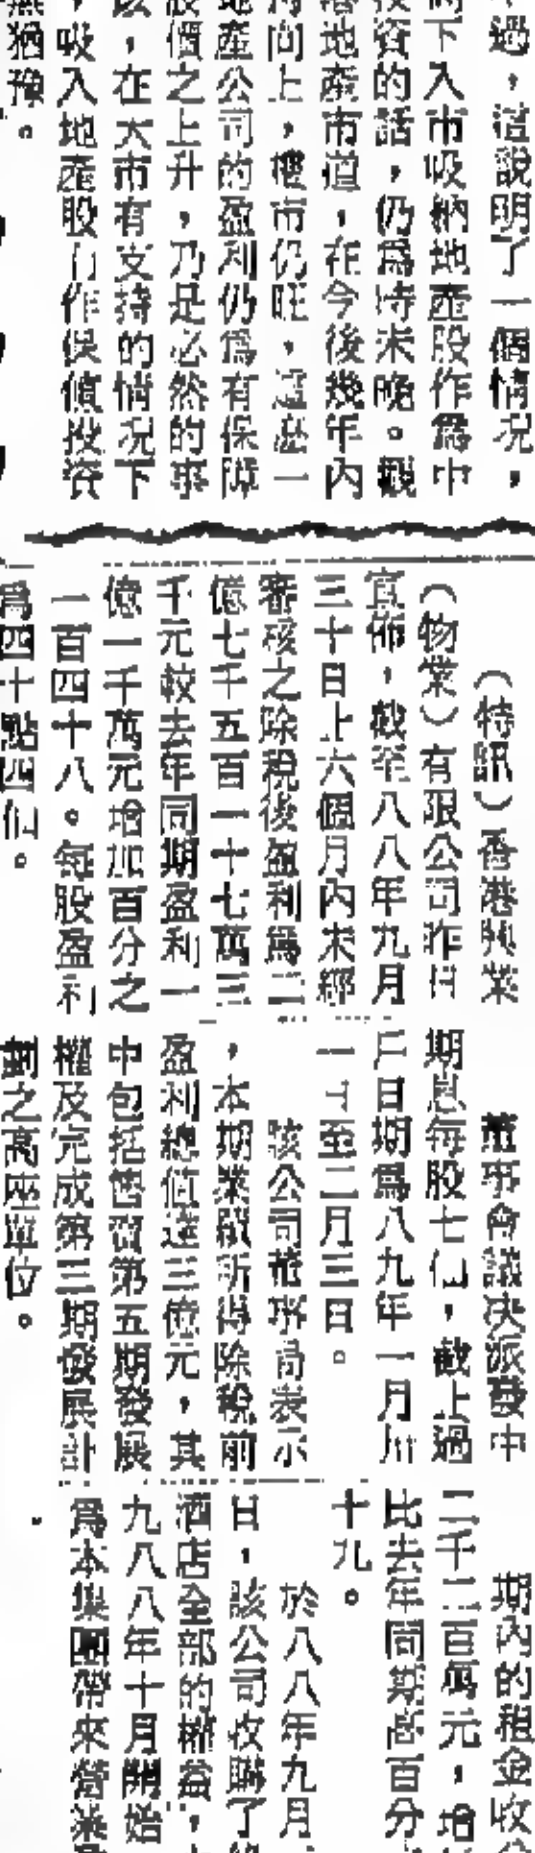 過，這說明了一個情況，
下入市吸納地產股作爲中
資的話，仍爲時未晚。觀
地產市道，在今後幾年內
向上，樓市仍旺，這麽一
地產公司的盈利仍爲有保障
股價之上升，乃是必然的事
，在大市有支持的情況下
，吸入地產股
作保值投資
無猶豫。
（特訊）香港興業
（物業）有限公司昨日
宣佈，截至八八年九月
三十日止六個月內未經
審核之除稅後盈利爲二
億七千五百一十七萬三
千元較去年同期盈利一
億一千萬元增加百分之
一百四十八。每股盈利
爲四十點四仙。
董事會議決派發中
期息每股七仙，截止過
戶日期爲八九年一月卅
一日至二月三日。
該公司董事局表示
，本期業績所得除稅前
盈利總值達三億元，其
中包括售賣第五期發展
權及完成第三期發展計
劃之高座單位。
期內的租金收
二千二百萬元，增
比去年同期高百分
十九。
於八八年九月
日，該公司收購了
酒店全部的權益，
九八八年十月開始
爲本集團帶來營業